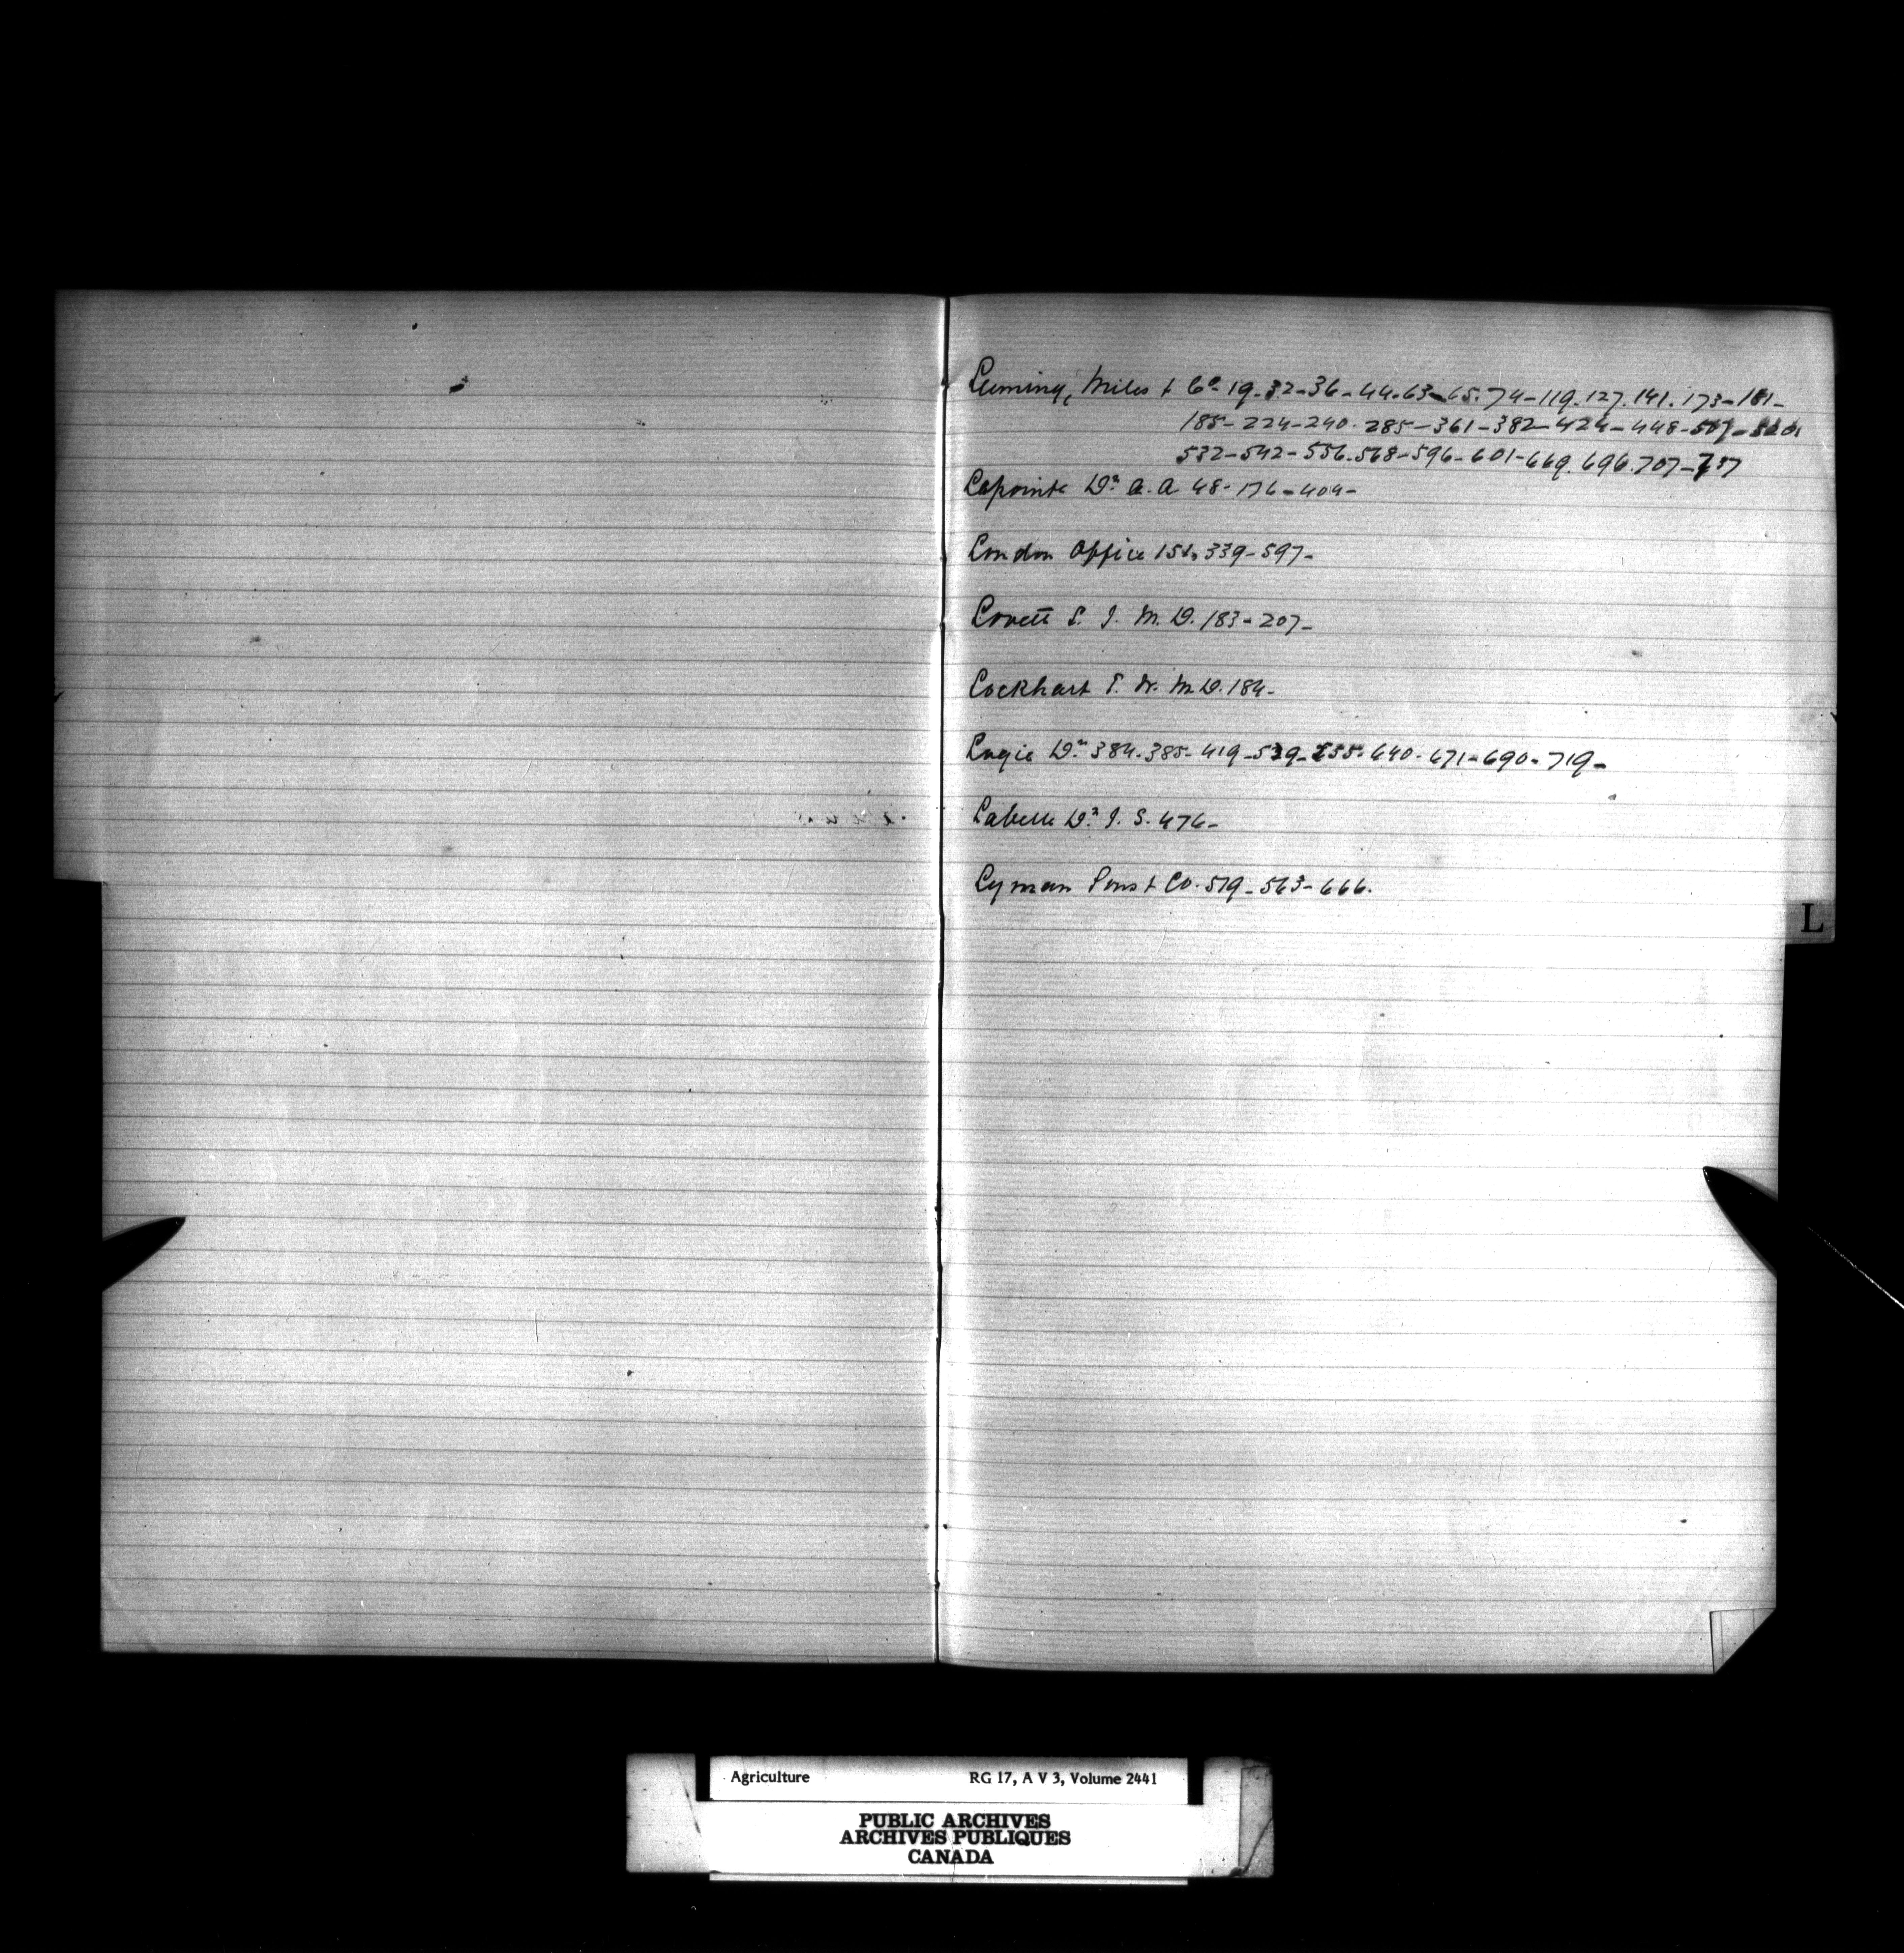 Leeming, Miles & Co. 19-32-36-44-63-65-74-119-127-141-173-181-
185-224-240-285-361-382-424-448-507-520
532-542-556-568-596-601-669-696-707-737
Lapointe Dr A. A 48-176-404-
London Office 151, 339-597-
Lovett L. J. M. D. 183-207-
Lockhart T. W. M. D. 184-
Lugie Dr 384-385-419-539-555-640-671-690-719-
Labelle Dr J. S. 476-
L
Lyman Sons & Co. 519-563-666.
Agriculture RG 17, A V 3, Volume 2441
PUBLIC ARCHIVES
ARCHIVES PUBLIQUES
CANADA